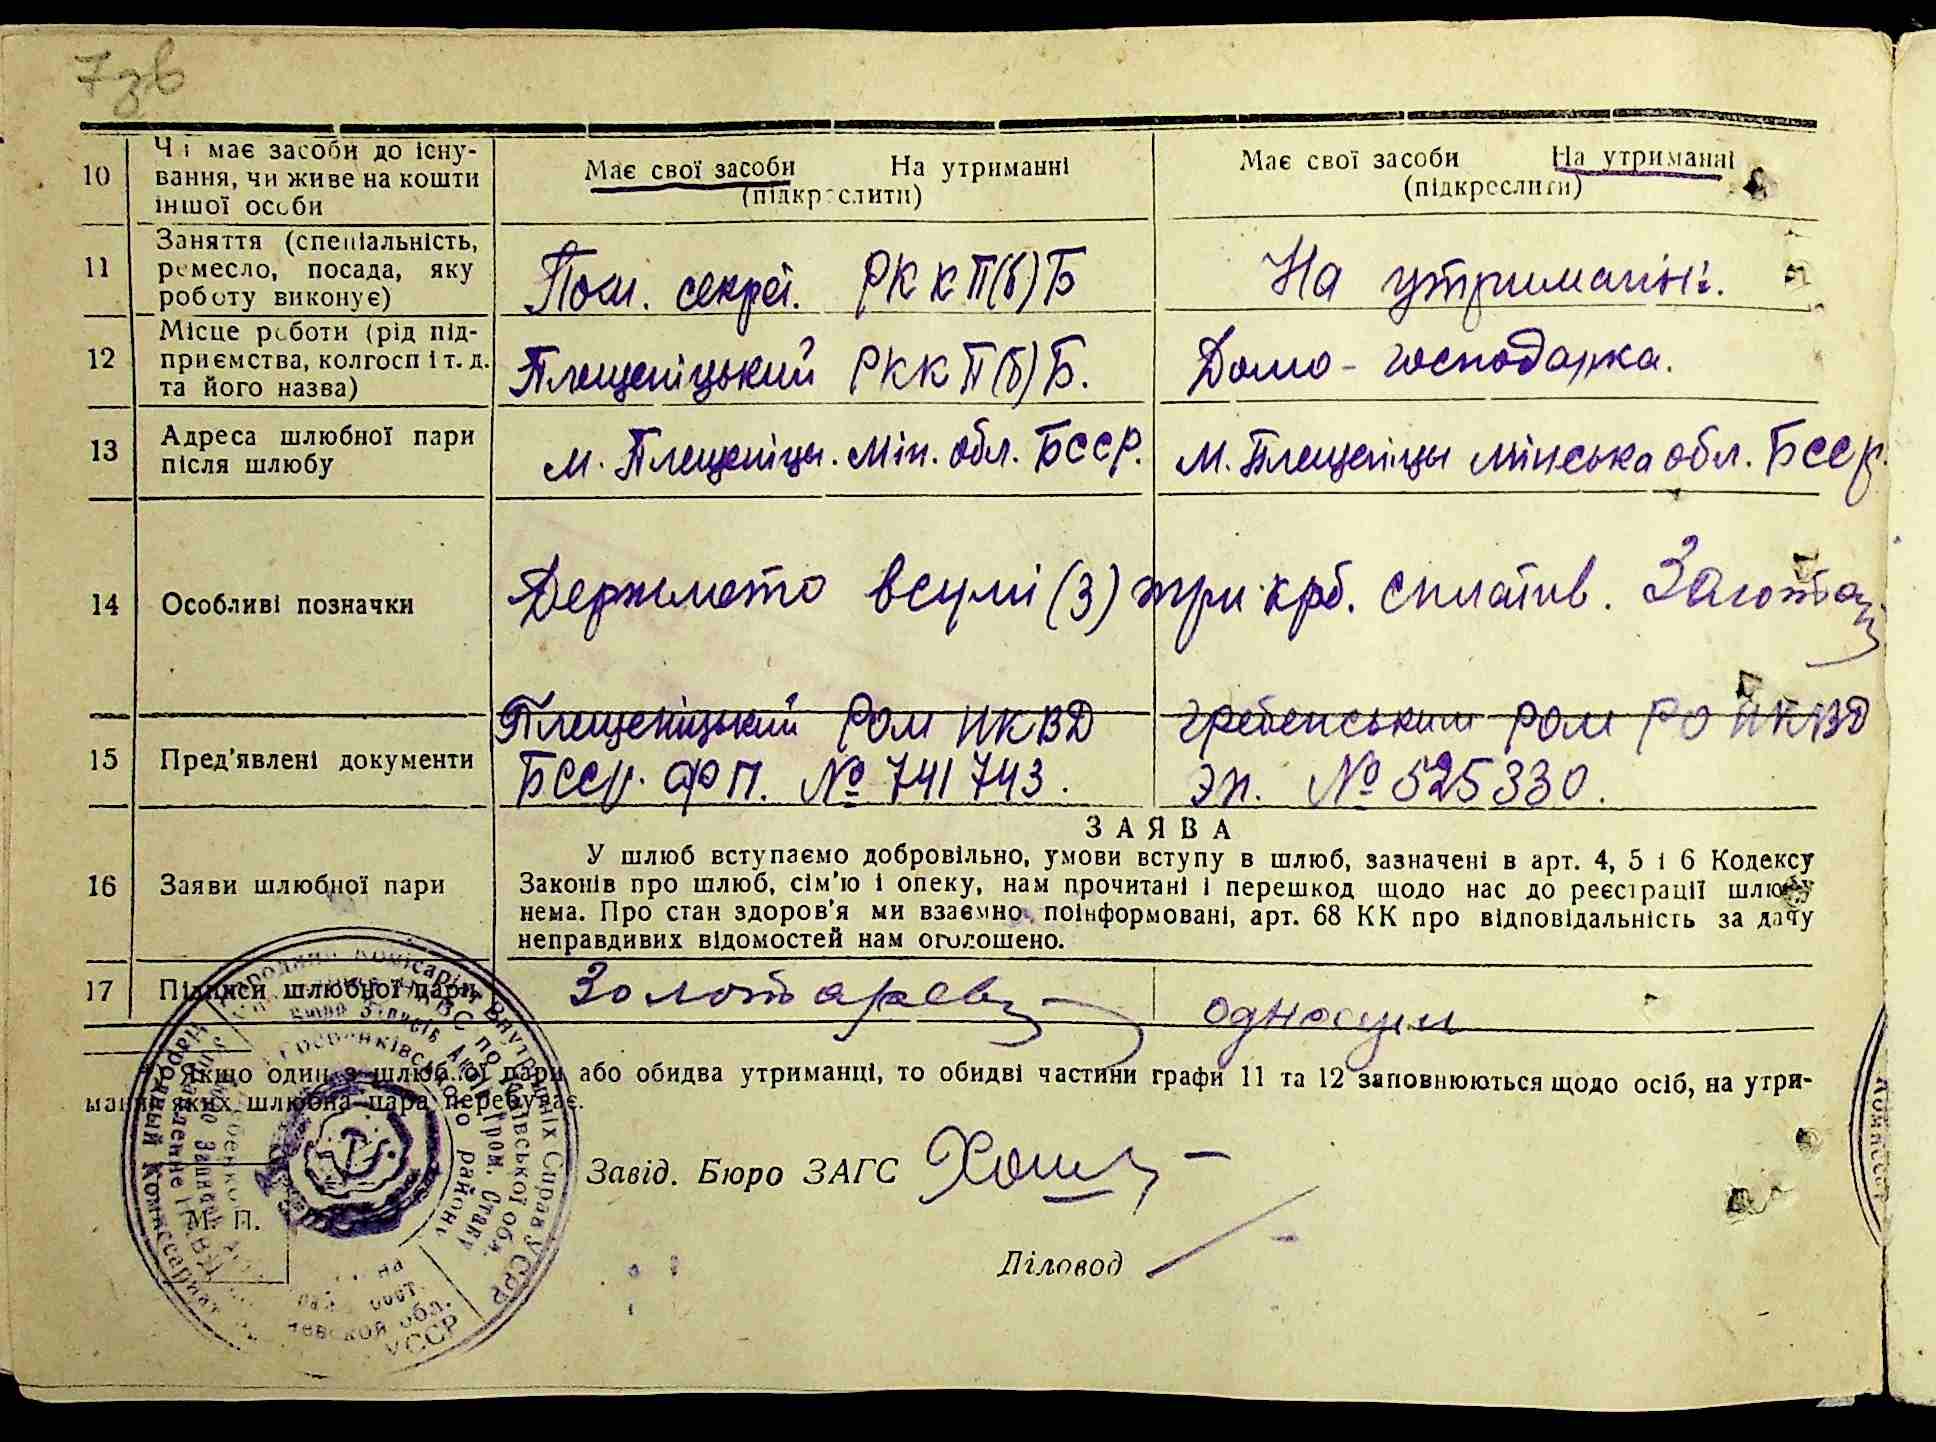 7зв
10 Чи має засоби до існу-
вання, чи живе на кошти
іншої особи
Має свої засоби На утриманні
(підкреслити)
Має свої засоби На утриманні
(підкреслити)
11 Заняття (спеціальність,
ремесло, посада, яку
роботу виконує)
Пом. секрет. РККП(б)Б
На утриманні.
12 Місце роботи (рід під-
приємства, колгосп і т. д.
та його назва)
Плещеніцький РККП(б)Б.
Домо-господарка.
13 Адреса шлюбної пари
після шлюбу
м. Плещеніцы. Мін. обл. БССР.
м. Плещеніцы мінська обл. БССР.
14 Особливі позначки
Держмито всумі (3) три крб. сплатив.
15 Пред'явлені документи
Плещеніцький РОМ НКВД
БССР. ФП. № 741743.
Гребенським РОМ РО НКВД
ЭП. № 525330.
16 Заяви шлюбної пари
ЗАЯВА
У шлюб вступаємо добровільно, умови вступу в шлюб, зазначені в арт. 4, 5 і 6 Кодексу
Законів про шлюб, сім'ю і опеку, нам прочитані і перешкод щодо нас до реєстрації шлюбу
нема. Про стан здоров'я ми взаємно поінформовані, арт. 68 КК про відповідальність за дачу
неправдивих відомостей нам оголошено.
17 Підписи шлюбної пари
Золотарев
Якщо один з шлюбної пари або обидва утриманці, то обидві частини графи 11 та 12 заповнюються щодо осіб, на утри-
манні яких шлюбна пара перебуває.
Завід. Бюро ЗАГС
М. П.
Діловод
Народний Комісаріат Внутрішніх Справ УСРР
по Київській обл.
Бюро Записів Актів Гром. Стану
Гребінківського району
Народный Комиссариат
УССР